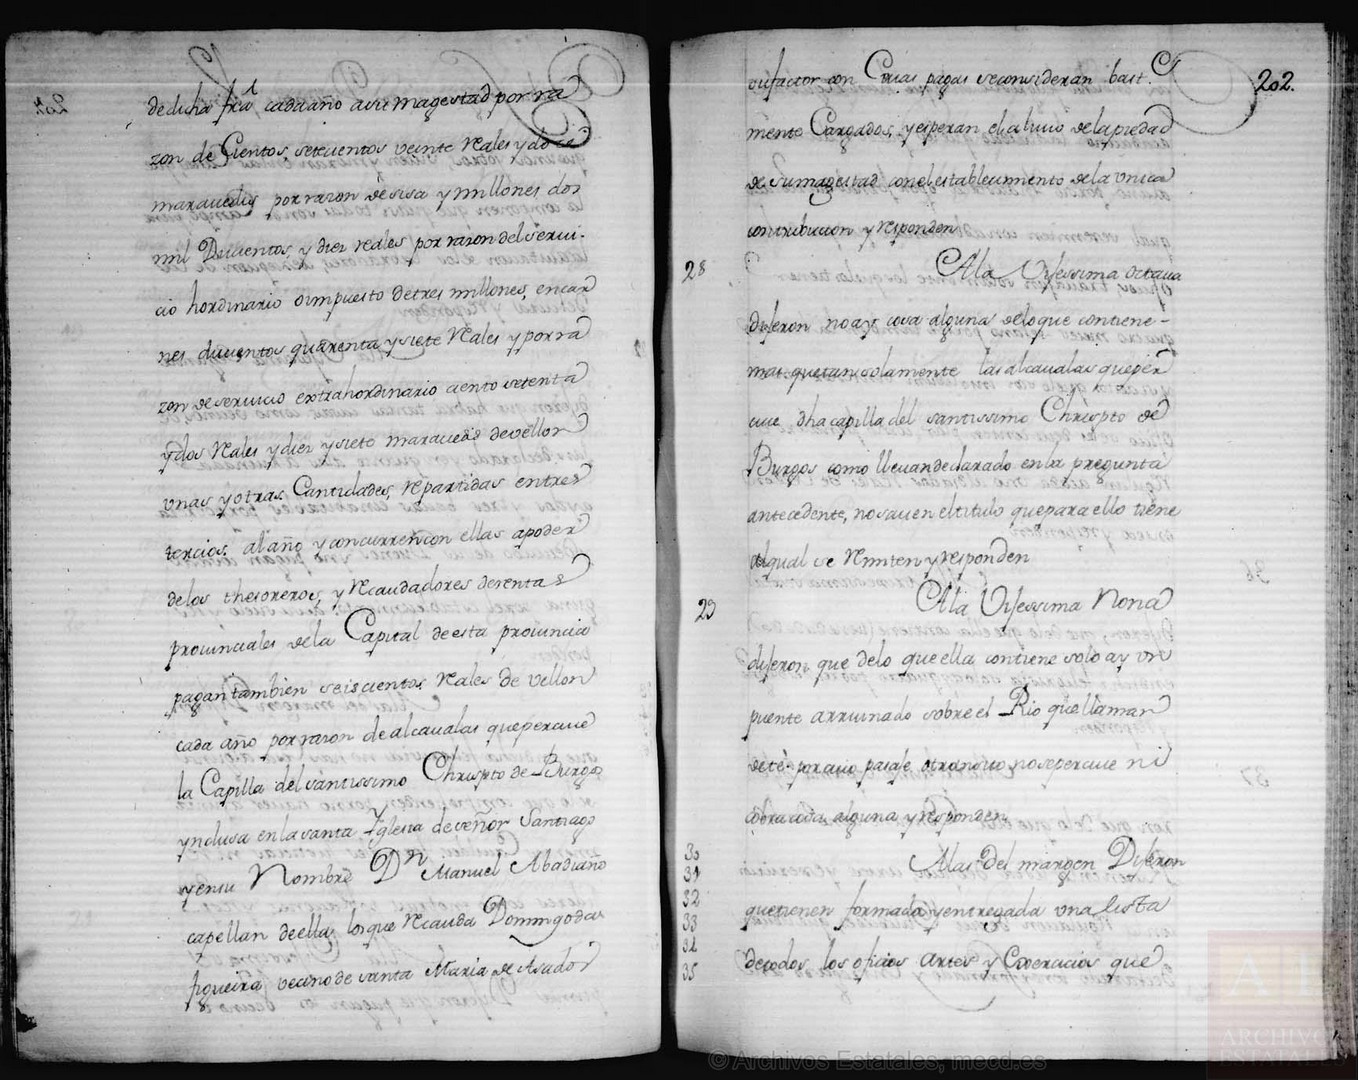 de dicha fra. cada año a su magestad por ra
zon de Cientos, setecientos veinte reales y doze
maravedis por razon de sisa y millones dos
mil Ducientos, y diez reales por razon del servi-
cio hordinario o impuesto de tres millones, encar
nes ducientos quarenta y siete Reales y por ra
zon de servicio extrahordinario ciento setenta
y dos Reales y diez y siete maravedis de vellon
unas y otras Cantidades, repartidas entres
tercios al año y concurren con ellas a poder
de los thesoreros, y Recaudadores de rentas
provinciales de la Capital de esta provincia
pagan tambien seiscientos Reales de vellon
cada año por razon de alcavalas que percive
la Capilla del santissimo Christo de Burgos
ynclusa en la santa Iglesia de señor Santiago
y en su Nombre Dn Manuel Abadiano
capellan de ella, los que Recauda Domingo da
figueira vecino de santa Maria de Asados
202.
mente Cargados, y esperan el alivio de la piedad
de su magestad con el establecimiento de la unica
contribucion y responden
28
A la Vijessima octava
dijeron no ay cosa alguna de lo que contiene-
mas que tan solamente las alcavalas que per
cive dha capilla del santissimo Christo de
Burgos como llevan declarado en la pregunta
antecedente, no saven el titulo que para ello tiene
al qual se Remiten y responden
29
A la Vijessima Nona
dijeron que de lo que ella contiene solo ay un
puente arruinado sobre el Rio que llaman
de te por cuio pasaje o transito no se percive ni
cobra cosa alguna y responden
30
31
32
33
34
35
A las del margen Dijeron
que tienen formada y entregada una lista
de todos los oficios Artes y Grangerias que
© Archivos Estatales, mecd.es
AE
ARCHIVOS
ESTATALES